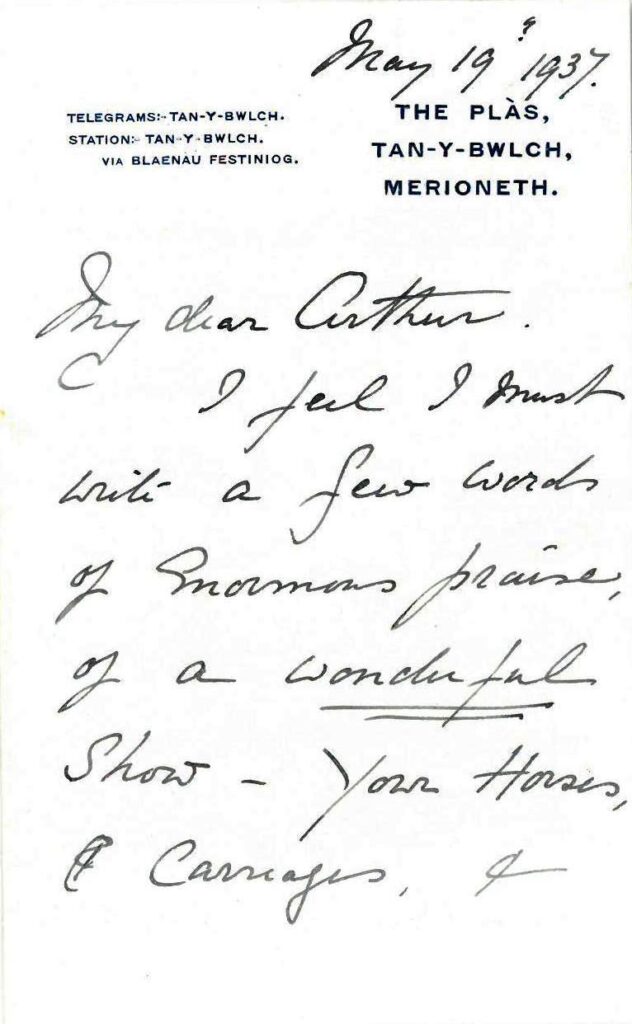 May 19th 1937.
TELEGRAMS:- TAN-Y-BWLCH.
STATION:- TAN-Y-BWLCH.
VIA BLAENAU FESTINIOG.
THE PLÀS,
TAN-Y-BWLCH,
MERIONETH.
My dear Arthur.
I feel I must
write a few words
of Enormous praise,
of a wonderful
Show - Your Horses,
& Carriages, &